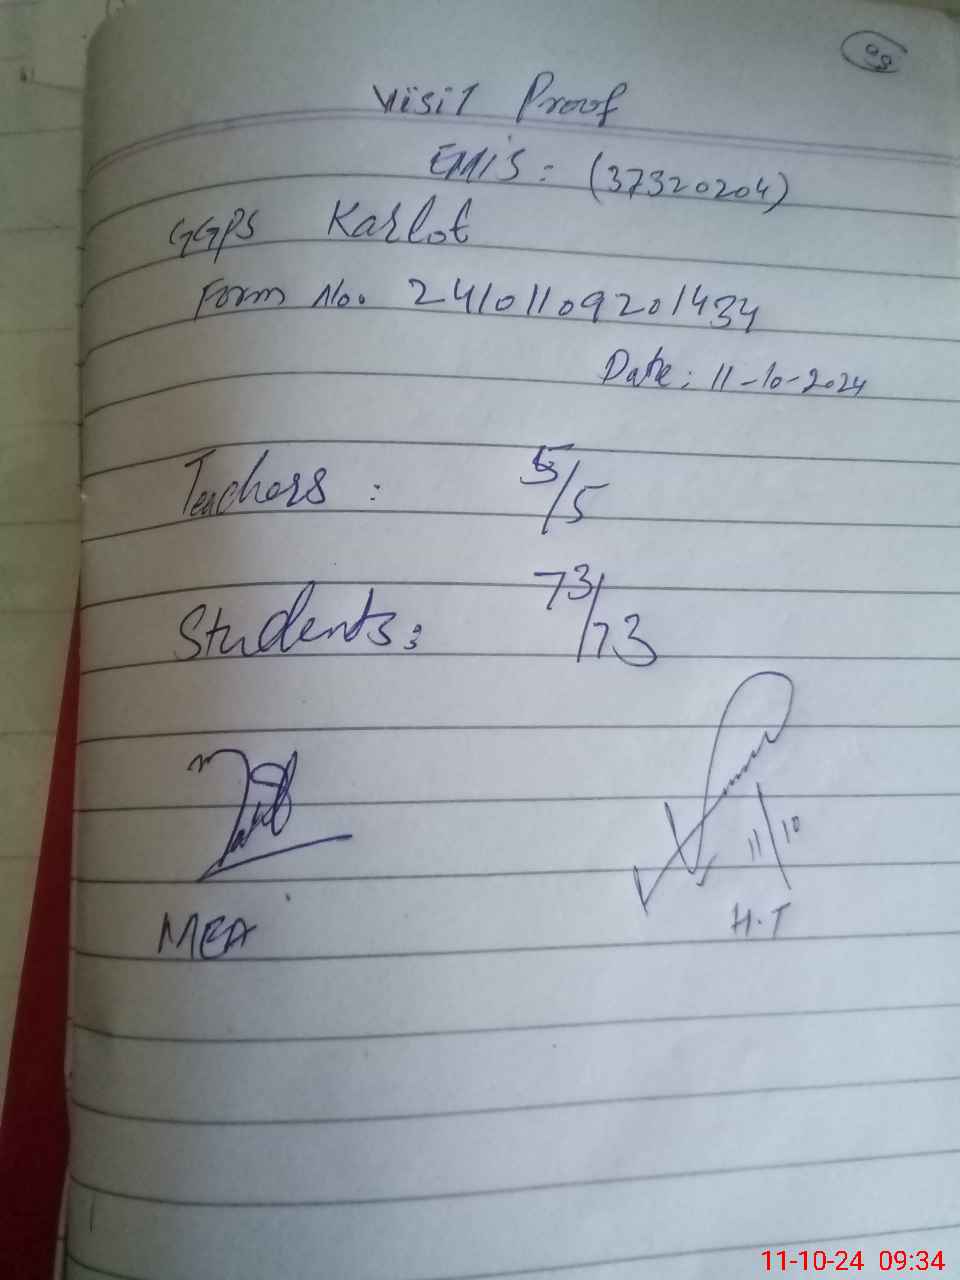 09
Visit Proof
EMIS: (37320204)
GGPS Karlot
Form No. 24101109201434
Date: 11-10-2024
Teachers: 5/5
Students: 73/73
11/10
MEA
H.T
11-10-24 09:34